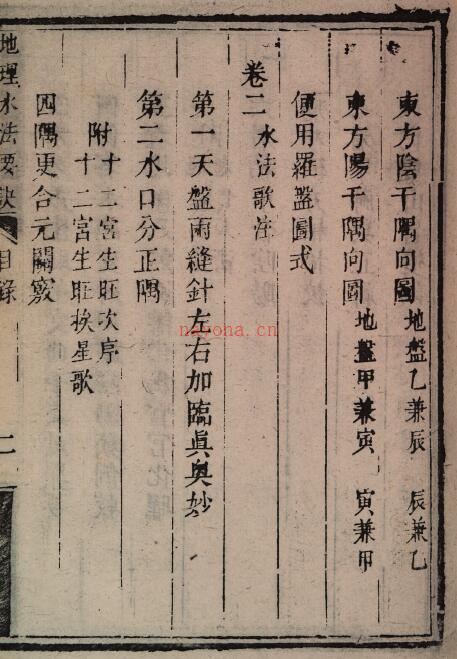 東方陰干隅向圖 地盤乙兼辰 辰兼乙
東方陽干隅向圖 地盤甲兼寅 寅兼甲
便用羅盤圖式
卷二 水法歌注
第一天盤兩縫針左右加臨眞奧妙
第二水口分正隅
附十二宮生旺次序
十二宮生旺挨星歌
四隅更合元關竅
地理水法要訣 目錄 二
nayona.cn